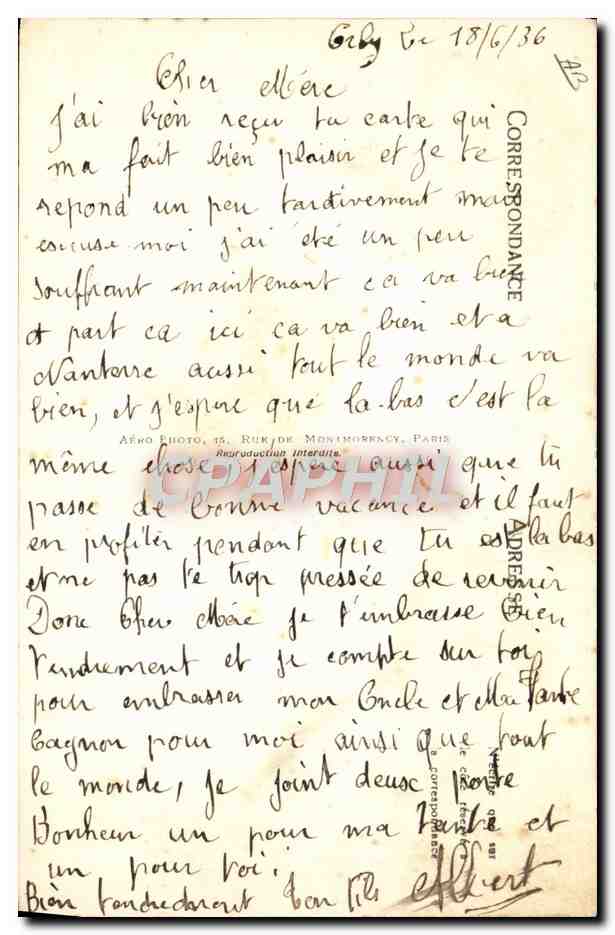 Orly Le 18/6/36
AB
Cher Mére
J'ai bien reçu ta carte qui
ma fait bien plaisir et je te
repond un peu tardivement mais
escuse moi j'ai été un peu
souffrant maintenant ca va bien
a part ca ici ca va bien et a
Nanterre aussi tout le monde va
bien, et j'espere que la-bas c'est la
AÉRO PHOTO, 15, RUE DE MONTMORENCY, PARIS
Reproduction Interdite.
même chose j'espere aussi que tu
passe de bonne vacance et il faut
en profiter pendant que tu es la bas
et ne pas te trop pressée de revenir
Donc Cher Mére je t'embrasse bien
tendrement et je compte sur toi
pour embrasser mon Oncle et Ma Tante
Cagnon pour moi ainsi que tout
le monde, je joint deuse porte
Bonheur un pour ma tante et
un pour toi.
Bien tendrement ton fils Albert
CORRESPONDANCE
ADRESSE
N'écrire que sur
le côté réservé
à correspondance
CPAPHIL